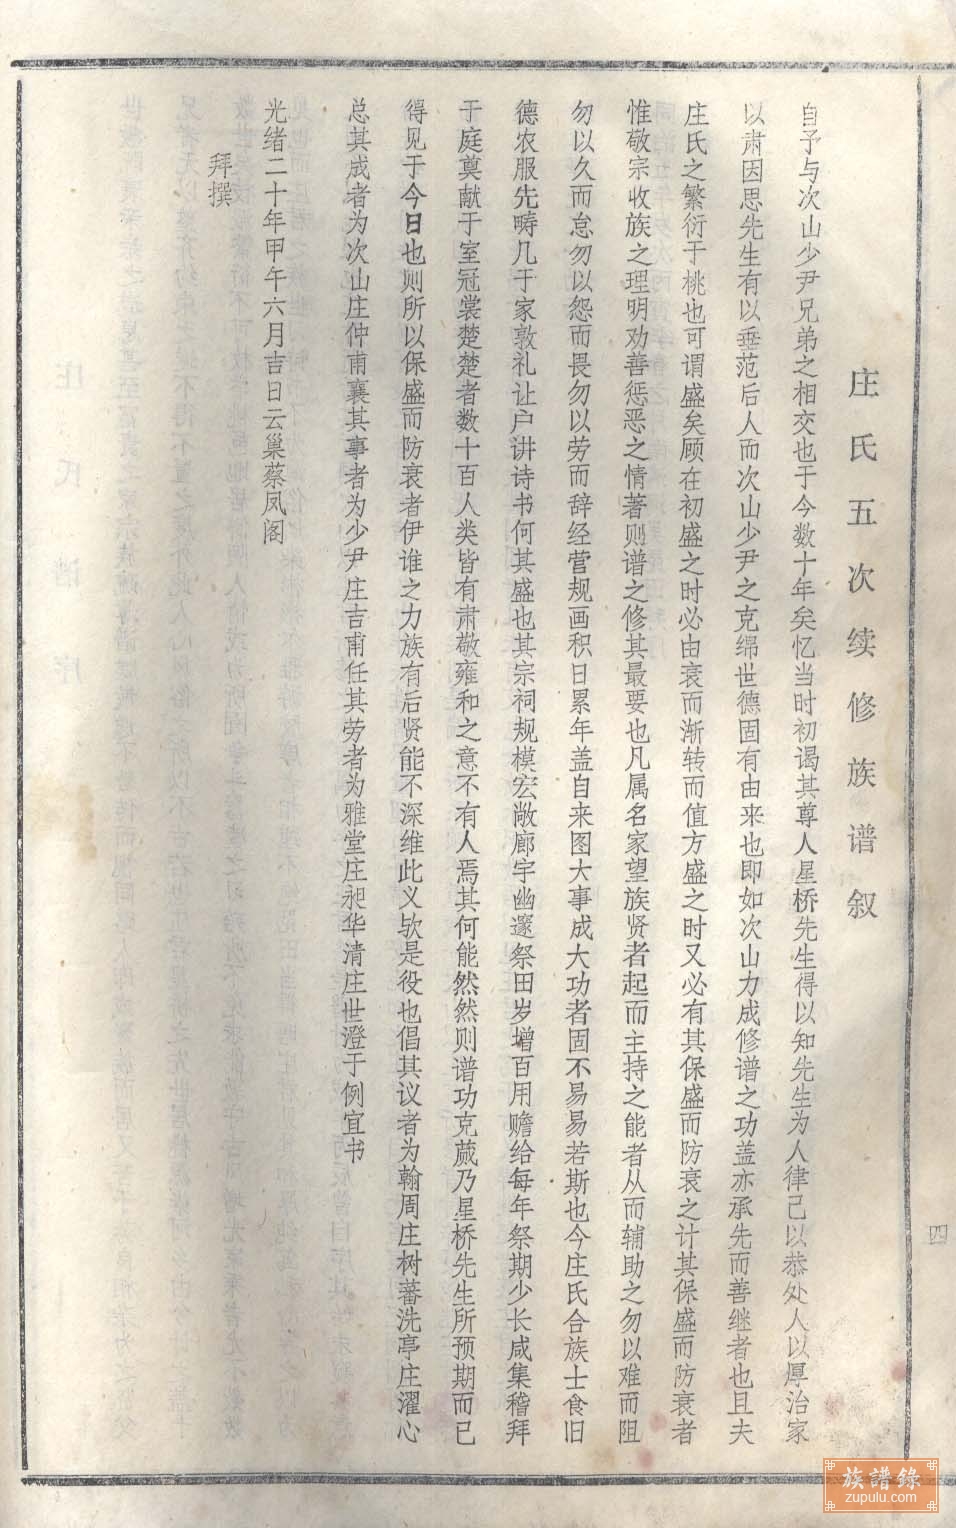 庄氏五次续修族谱叙
自予与次山少尹兄弟之相交也于今数十年矣忆当时初谒其尊人星桥先生得以知先生为人律己以恭处人以厚治家
以肃因思先生有以垂范后人而次山少尹之克绵世德固有由来也即如次山力成修谱之功盖亦承先而善继者也且夫
庄氏之繁衍于桃也可谓盛矣顾在初盛之时必由衰而渐转而值方盛之时又必有其保盛而防衰之计其保盛而防衰者
惟敬宗收族之理明劝善惩恶之情著则谱之修其最要也凡属名家望族贤者起而主持之能者从而辅助之勿以难而阻
勿以久而怠勿以怨而畏勿以劳而辞经营规画积日累年盖自来图大事成大功者固不易易若斯也今庄氏合族士食旧
德农服先畴几于家敦礼让户讲诗书何其盛也其宗祠规模宏敞廊宇幽邃祭田岁增百用赡给每年祭期少长咸集稽拜
于庭奠献于室冠裳楚楚者数十百人类皆有肃敬雍和之意不有人焉其何能然然则谱功克蒇乃星桥先生所预期而已
得见于今日也则所以保盛而防衰者伊谁之力族有后贤能不深维此义欤是役也倡其议者为翰周庄树蕃洗亭庄濯心
总其成者为次山庄仲甫襄其事者为少尹庄吉甫任其劳者为雅堂庄昶华清庄世澄于例宜书
光绪二十年甲午六月吉日云巢蔡凤阁
拜撰
四
族譜錄
zupulu.com